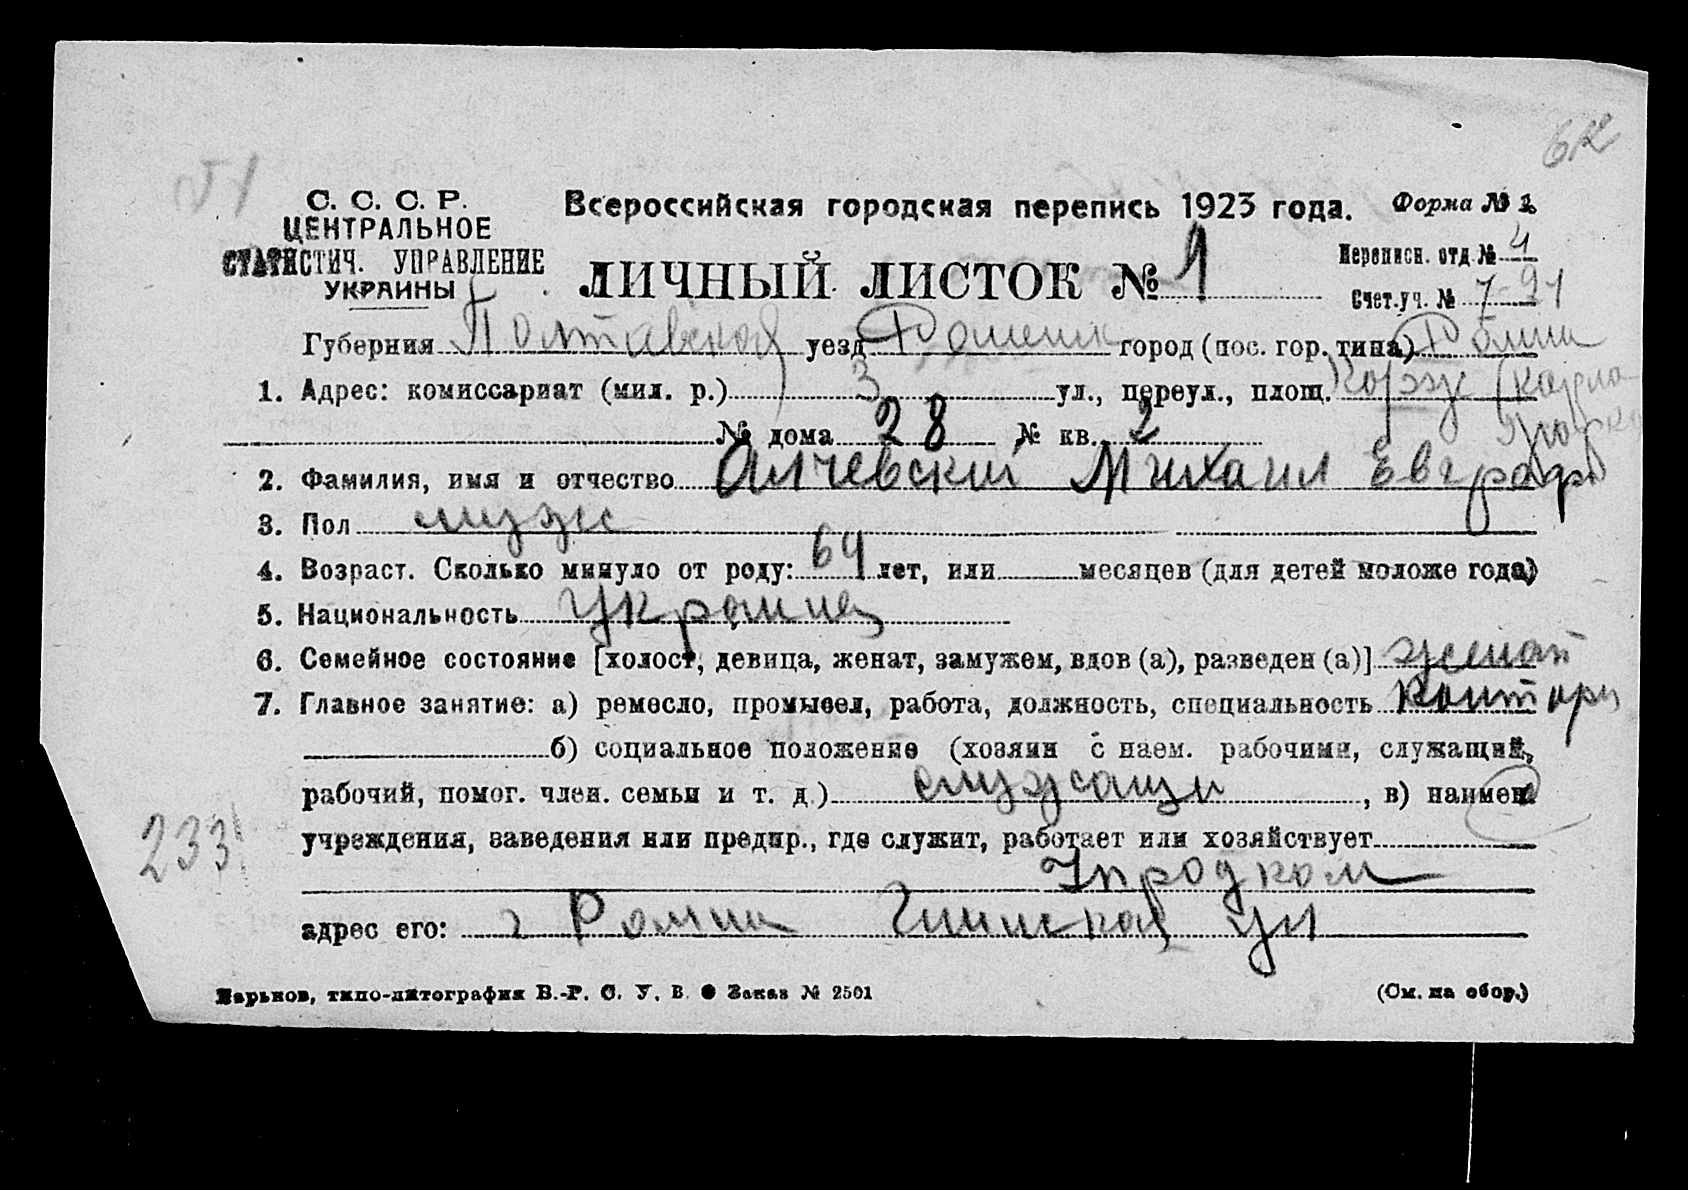 С. С. С. Р.
ЦЕНТРАЛЬНОЕ
СТАТИСТИЧ. УПРАВЛЕНИЕ
УКРАИНЫ
Всероссийская городская перепись 1923 года.
Форма № 2
ЛИЧНЫЙ ЛИСТОК № 1
Переписн. отд. № 4
Счет. уч. № 7-91
Губерния Полтавская уезд Роменск город (пос. гор. типа) Ромны
1. Адрес: комиссариат (мил. р.) 3 ул., переул., площ.
№ дома 28 № кв. 2
2. Фамилия, имя и отчество Алчевский Михаил Евграфо
3. Пол мужс
4. Возраст. Сколько минуло от роду: 64 лет, или месяцев (для детей моложе года)
5. Национальность украинец
6. Семейное состояние [холост, девица, женат, замужем, вдов (а), разведен (а)] женат
7. Главное занятие: а) ремесло, промысел, работа, должность, специальность конторщ
б) социальное положение (хозяин с наем. рабочими, служащий,
рабочий, помог. член. семьи и т. д.) служащи, в) наимен.
учреждения, заведения или предпр., где служит, работает или хозяйствует
Упродком
адрес его: г Ромны ул
Харьков, типо-литография В.-Р. С. У. В. Заказ № 2501
(См. на обор.)
233